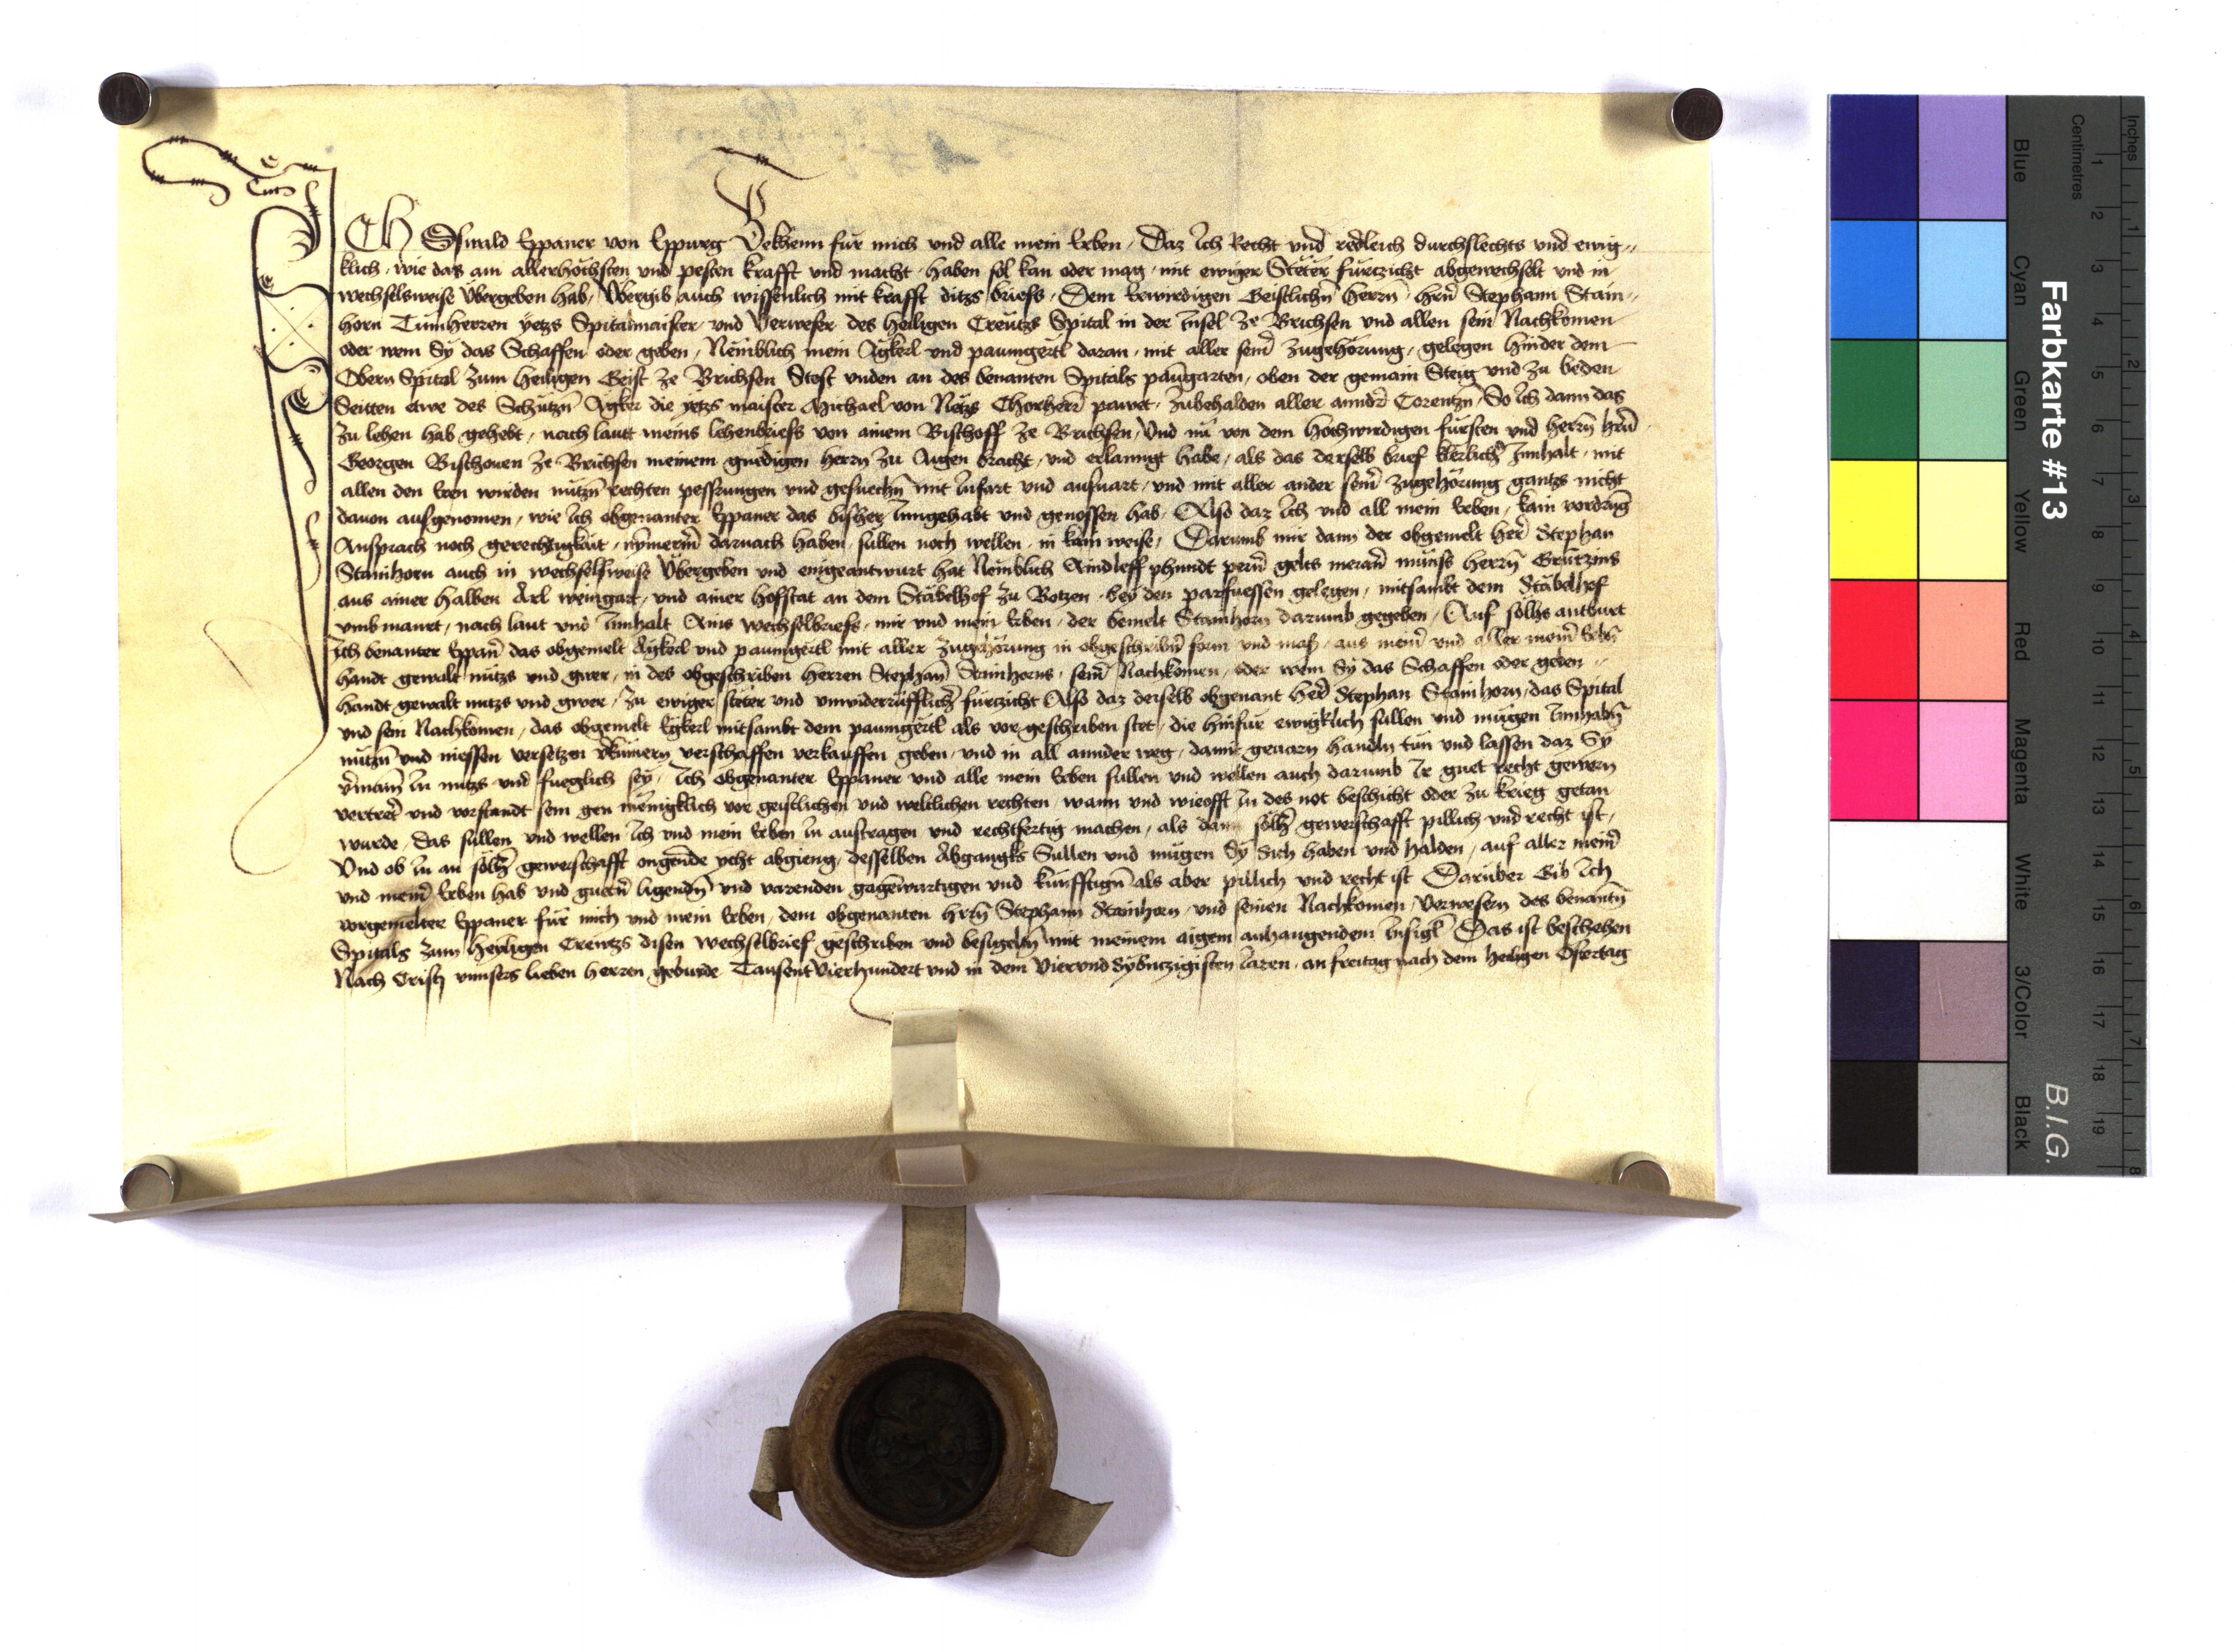 ICH Oswald Eppaner von Eppurg Bekhenn für mich und alle mein Erben, Daz Ich Recht vnd redleich durchslechts vnd ewig,,
klich, wie das am allerhöchsten und pesten krafft und macht, haben sol kan oder mag, mit ewiger Stëter fürtzicht abgewechselt vnd in
wechselsweise Übergeben hab, Übergib auch wissenlich mit krafft ditzs briefs, Dem Erwirdigen Geistlichn̄ herrn̄, hrn̄ Stephann Stain,,
horn Tümherren yetzs Spitalmaister, vnd Verweser des heiligen Creutzs Spital in der Insel ze Brichsen vnd allen sein Nachkomen
oder wem Sÿ das Schaffen oder geben, Nemblich mein Agkerl vnd paumgertl daran, mit aller seinr̄ zugehörung, gelegen hinder dem
Obern Spital zum heiligen Geist ze Brichsen Stost vnden an des benanten Spitals paūgarten, oben der gemain Steig vnd zu beden
Seitten etwe des Schützn̄ Agker die yetzs maister Michael von Netzs Chorherr pawet, zubehalden aller annder̄ Corentzn̄, So Ich dann das
zu lehen hab gehebt, nach lautt meins lehenbriefs von ainem Bischoff ze Brichsen, Vnd nü von dem hochwirdigen fürsten vnd herrn̄ hrn̄
Georgen Bischouen ze Brichsen meinem gnedigen herrn zu Aigen bracht, vnd erlanngt habe, als das derselb brief klerlichr̄ Innhalt, mit
allen den Eren wirden nützn̄ rechten pessrungen vnd gesuechn̄ mit Infart vnd ausuart, vnd mit aller ander seinr̄ zugehörung gantzs nicht
dauon ausgenomen, wie Ich obgenanter Eppaner das bisher Inngehabt vnd genossen hab, Also daz Ich vnd all mein Erben, kain vordrūg
Ansprach noch gerechtigkait, nÿmerm̄ darnach haben, süllen noch wellen, in kain weise, Darumb mir dann der obgemelt her̄ Stephan
Stainhorn auch in wechselsweise Übergeben vnd eingeantwurt hat Nemblich Aindleff phundt pern̄ gelts meran̄ münss herrn̄ Gruntzins
aus ainer halben Arl weingart, vnd ainer hofstat an dem Stäbelhof zu Botzen, bey den parfuessen gelegen, mitsambt dem Stäbelhof
vmbmaurt, nach laut vnd Innhalt Ains wechselbriefs, mir vnd mein Erben, der bemelt Stainhorn darumb gegeben, Auf sölhs antburt
Ich benanter Eppan̄ das obgemelt Agkerl vnd paumgertl mit aller zugehörung in obgeschribn̄ form vnd mass, aus mein̄ vnd aller mein̄ Erbn̄
handt gewalt nutzs vnd gwer, in des obgeschriben herren Stephan̄ Stainhorns, sein̄ Nachkomen, oder wem Sÿ das Schaffen oder geben,,
handt gewalt nutzs vnd gwer, zu ewiger stëter vnd vnwiderrüfflichr̄ fürtzicht Also daz derselb obgenant her̄ Stephan Stainhorn, das Spital
vnd sein Nachkomen, das obgemelt Egkerl mitsambt dem paumgertl als vor geschriben stet, die hinfür ewigklich süllen vnd mügen Innhabn̄
nützn̄ vnd niessen versetzen verkümern verschaffen verkauffen geben, vnd in all annder weg, damit geuarn handln tün vnd lassen daz Sÿ
vermain̄ In nutzs vnd fueglich sey, Ich obgenanter Eppaner vnd alle mein Erben süllen vnd wellen auch darumb Ir guet recht gewern
vertretr̄ vnd vorstandt sein gen mënigklich vor geistlichen vnd weltlichen rechten, wann vnd wieofft In des not beschicht oder zu krieg getan
wurde, Das süllen vnd wellen Ich vnd mein Erben In austragen vnd rechtfertig machen, als dann sölhr̄ gewerschafft pillich vnd recht ist,
Vnd ob In an sölhr̄ gewerschafft ongende ycht abgieng, desselben Abgangks Süllen vnd mügen Sÿ Sich haben vnd halden, auf aller meinr̄
vnd meinr̄ Erben hab vnd guetn̄ ligendn̄ vnd varenden gagenwürtigen vnd künfftign̄ als aber pillich vnd recht ist Darüber Gib Ich
vorgemelter Eppaner für mich vnd mein Erben, dem obgenanten hrn̄ Stephann Stainhorn, vnd seinen Nachkomen, Verwesern des benantn̄
Spitals zum heyligen Creutzs disen wechselbrief, geschriben vnd besigeltn̄ mit meinem aigem anhangendem Insigl̄ Das ist beschehen
Nach Cristj vnnsers lieben herren geburde Tausent Vierhundert vnd in dem Viervnd Sÿbntzigisten Iaren, an freitag nach dem heiligen Ostertag
Farbkarte #13
B.I.G.
Inches
Centimetres
1 2 3 4 5 6 7 8 9 10 11 12 13 14 15 16 17 18 19
1 2 3 4 5 6 7 8
Blue Cyan Green Yellow Red Magenta White 3/Color Black